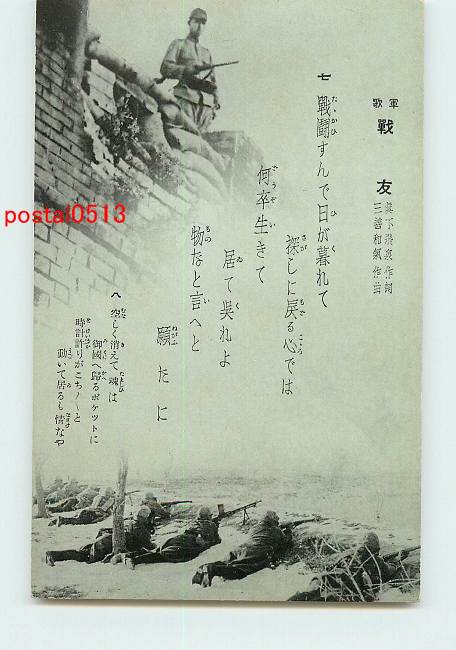 軍歌 戰友
眞下飛泉作詞
三善和氣作曲
七 戰鬪すんで日が暮れて
探しに戻る心では
何卒生きて
居て呉れよ
物なと言へと
願たに
八 空しく消えて魂は
御國へ歸るポケットに
時計許りがこち〱と
動いて居るも情なや
postal0513